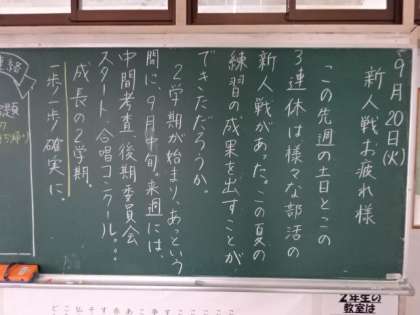 9月20日(火)
新人戦お疲れ様
この先週の土日とこの
3連休は様々な部活の
新人戦があった。この夏の
練習の成果を出すことが
できただろうか。
2学期が始まり、あっという
間に、9月中旬。来週には、
中間考査、後期委員会
スタート、合唱コンクール...
成長の2学期。
一歩一歩確実に。
連絡
2年生の
教室は